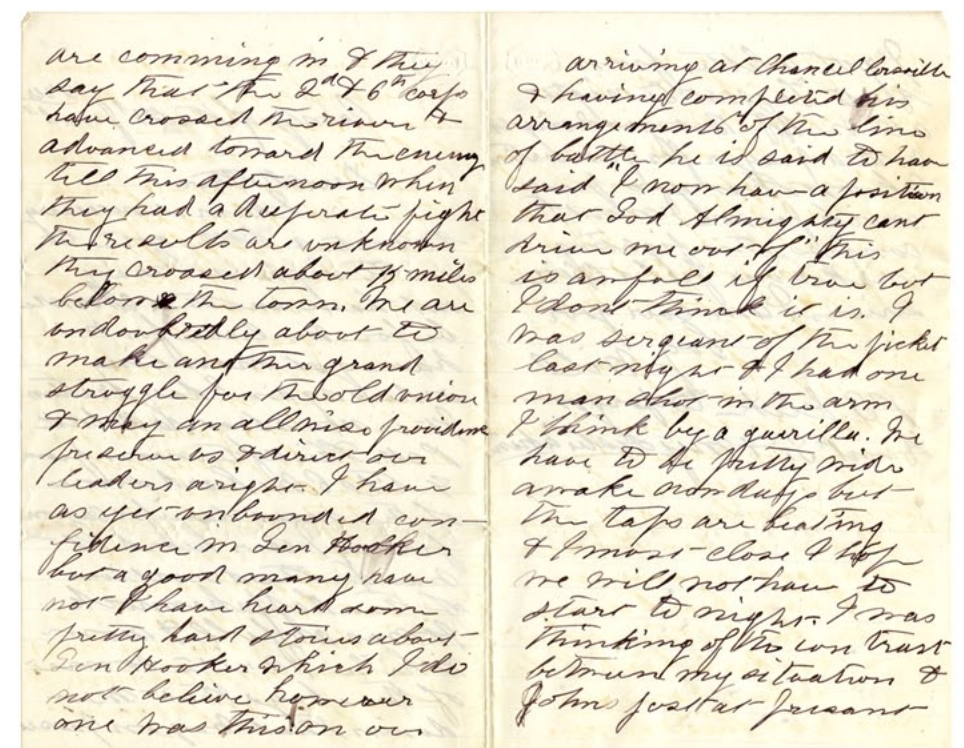 are comming in & they
say that the 2d & 6th corps
have crossed the river &
advanced toward the enemy
till this afternoon when
they had a desperate fight
the results are unknown
they croased about 15 miles
below the town. We are
undoubtedly about to
make another grand
struggle for the old union
& may an allwise providence
preserve us & direct our
leaders aright. I have
as yet unbounded con-
fidence in Gen Hooker
but a good many have
not I have heard some
pretty hard stories about
Gen Hooker which I do
not believe however
one was this on our
arriving at Chancellorsville
& having completed his
arrangements of the line
of battle he is said to have
said "I now have a position
that God Almighty cant
drive me out of" this
is awfull if true but
I dont think it is. I
was sergeant of the picket
last night & I had one
man shot in the arm
I think by a guerilla. We
have to be pretty wide
awake nowdays but
the taps are beating
& I must close I hope
we will not have to
start to night. I was
thinking of the con trast
between my situation &
Johns just at presant